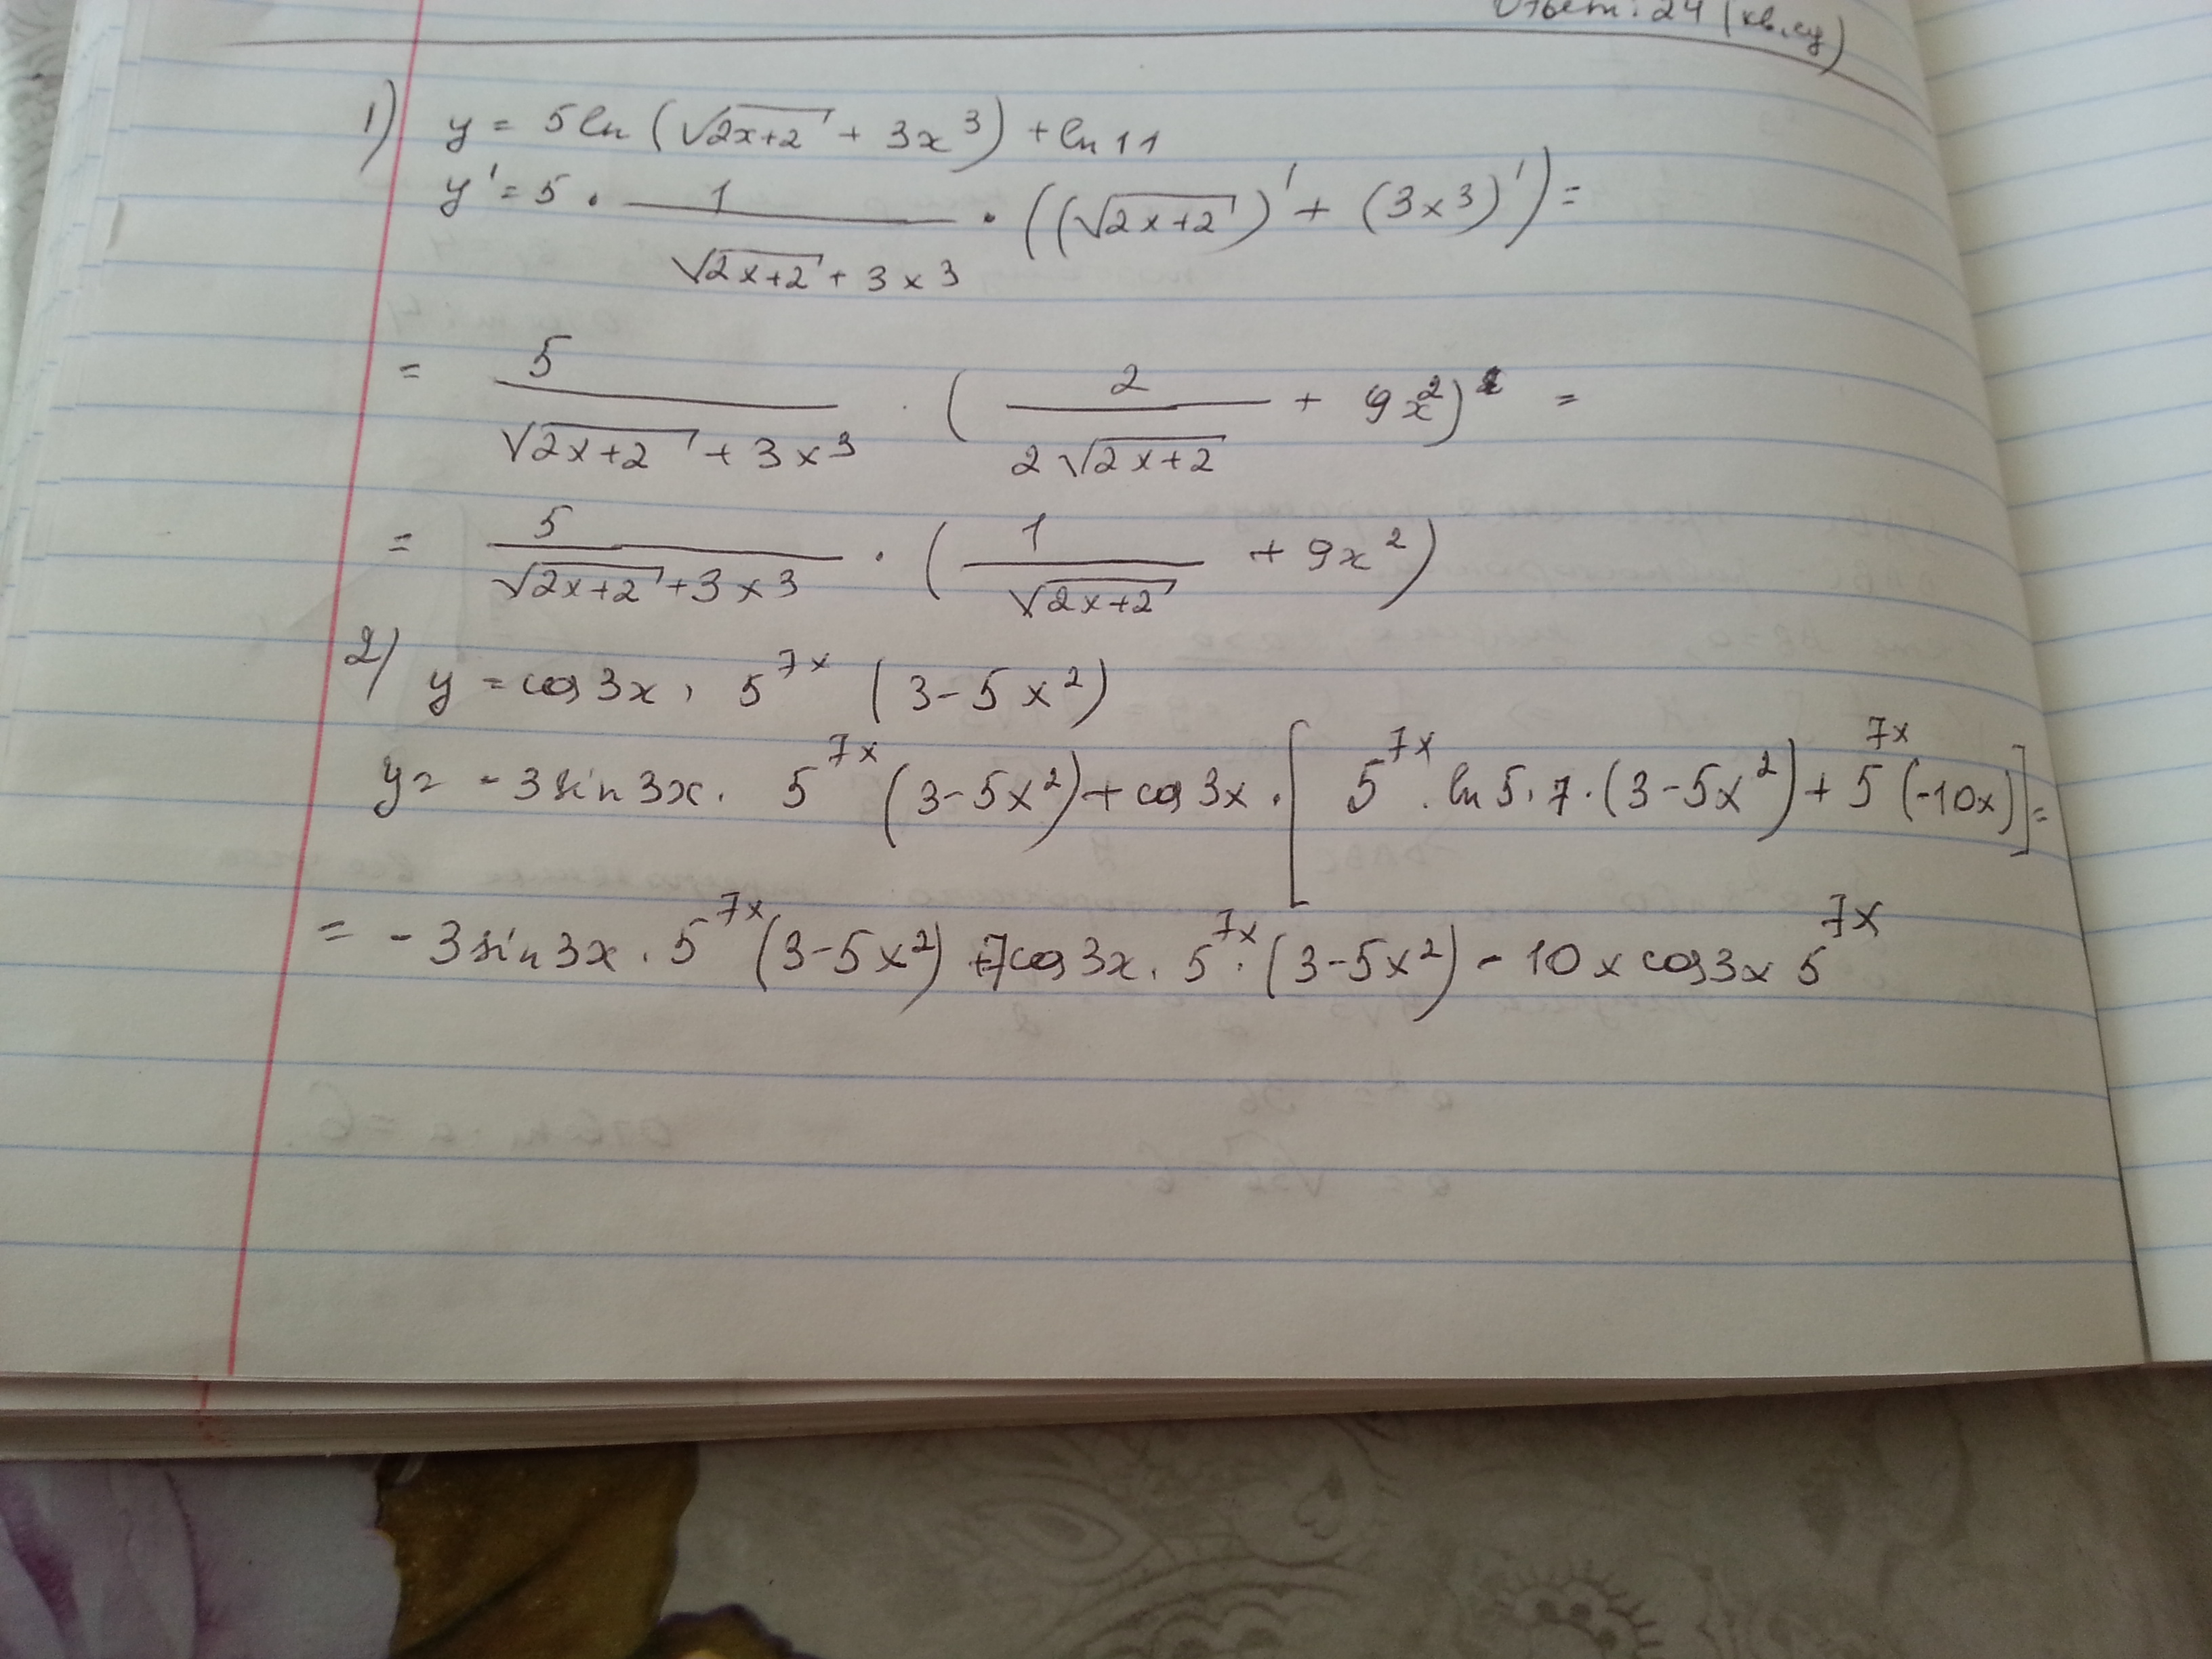 Ответ: 24 (кв.су)
1) y = 5 ln (√(2x+2) + 3x³) + ln 11
y' = 5 · 1/(√(2x+2) + 3x³) · ((√(2x+2))' + (3x³)') =
= 5/(√(2x+2) + 3x³) · (2/(2√(2x+2)) + 9x²) =
= 5/(√(2x+2) + 3x³) · (1/√(2x+2) + 9x²)
2) y = cos 3x · 5^(7x) (3-5x²)
y = -3 sin 3x · 5^(7x) (3-5x²) + cos 3x · [5^(7x) · ln 5 · 7 · (3-5x²) + 5^(7x) (-10x)] =
= -3 sin 3x · 5^(7x) (3-5x²) + 7cos 3x · 5^(7x) · (3-5x²) - 10x cos 3x 5^(7x)